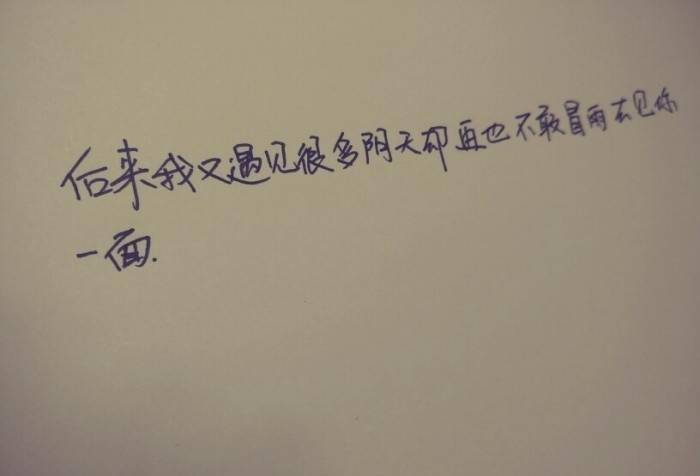 后来我又遇见很多阴天却再也不敢冒雨去见你
一面.